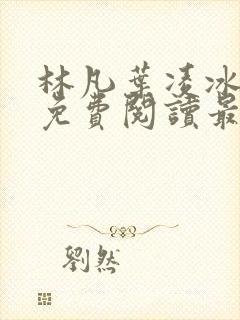 林凡葉凌冰
免費閱讀最
劉然